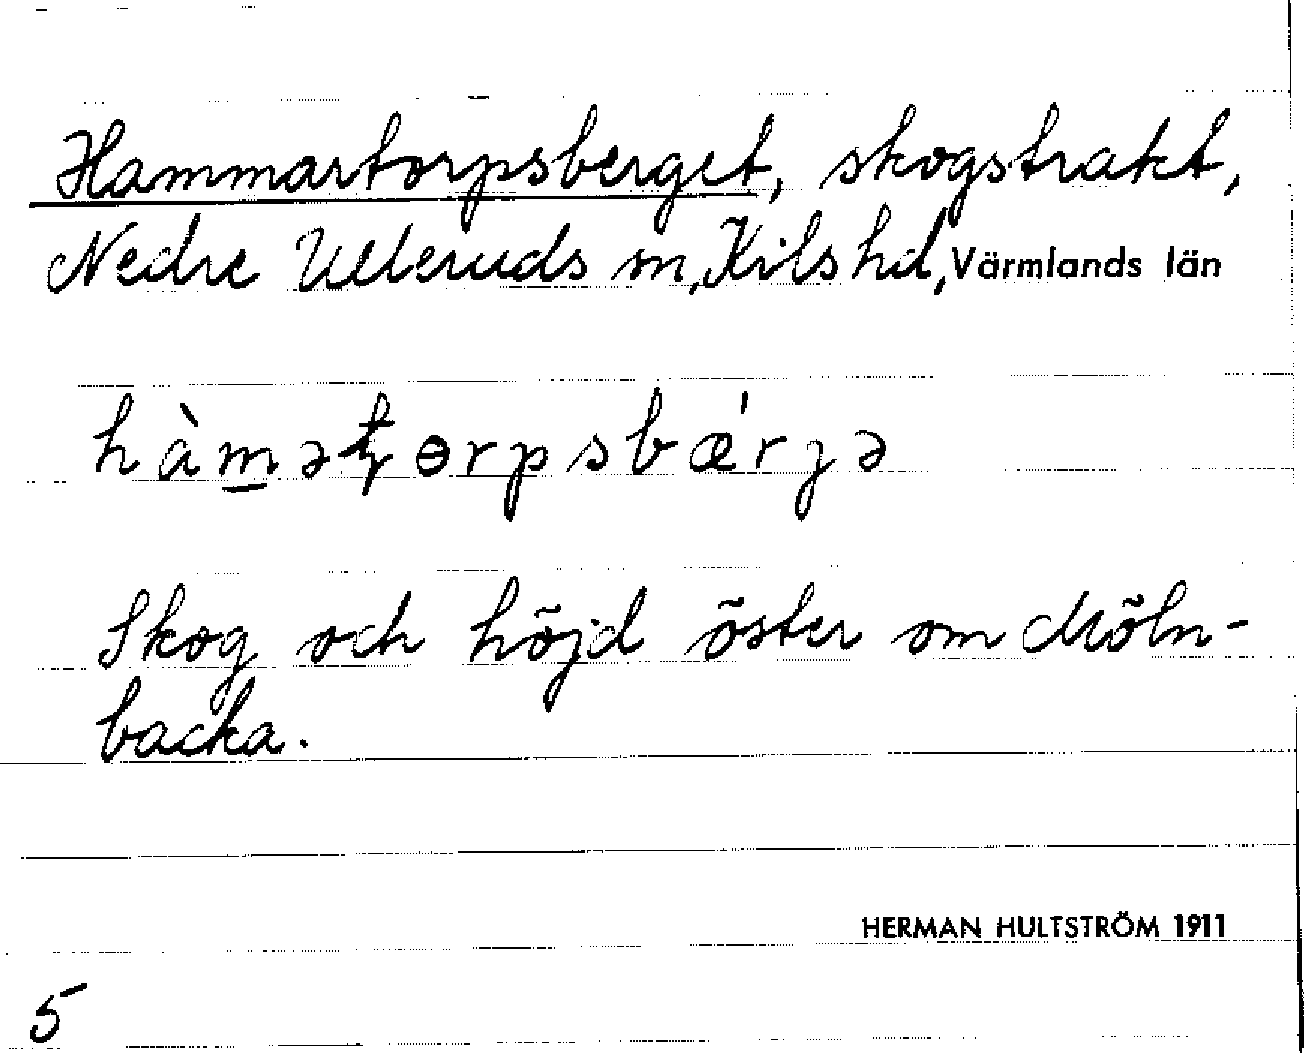 Hammartorpsberget, skogstrakt,
Nedre Ulleruds sn, Kils hd, Värmlands län
hàm̲əƫɵrpsbǽrȷə
Skog och höjd öster om Möln-
backa.
HERMAN HULTSTRÖM 1911
5